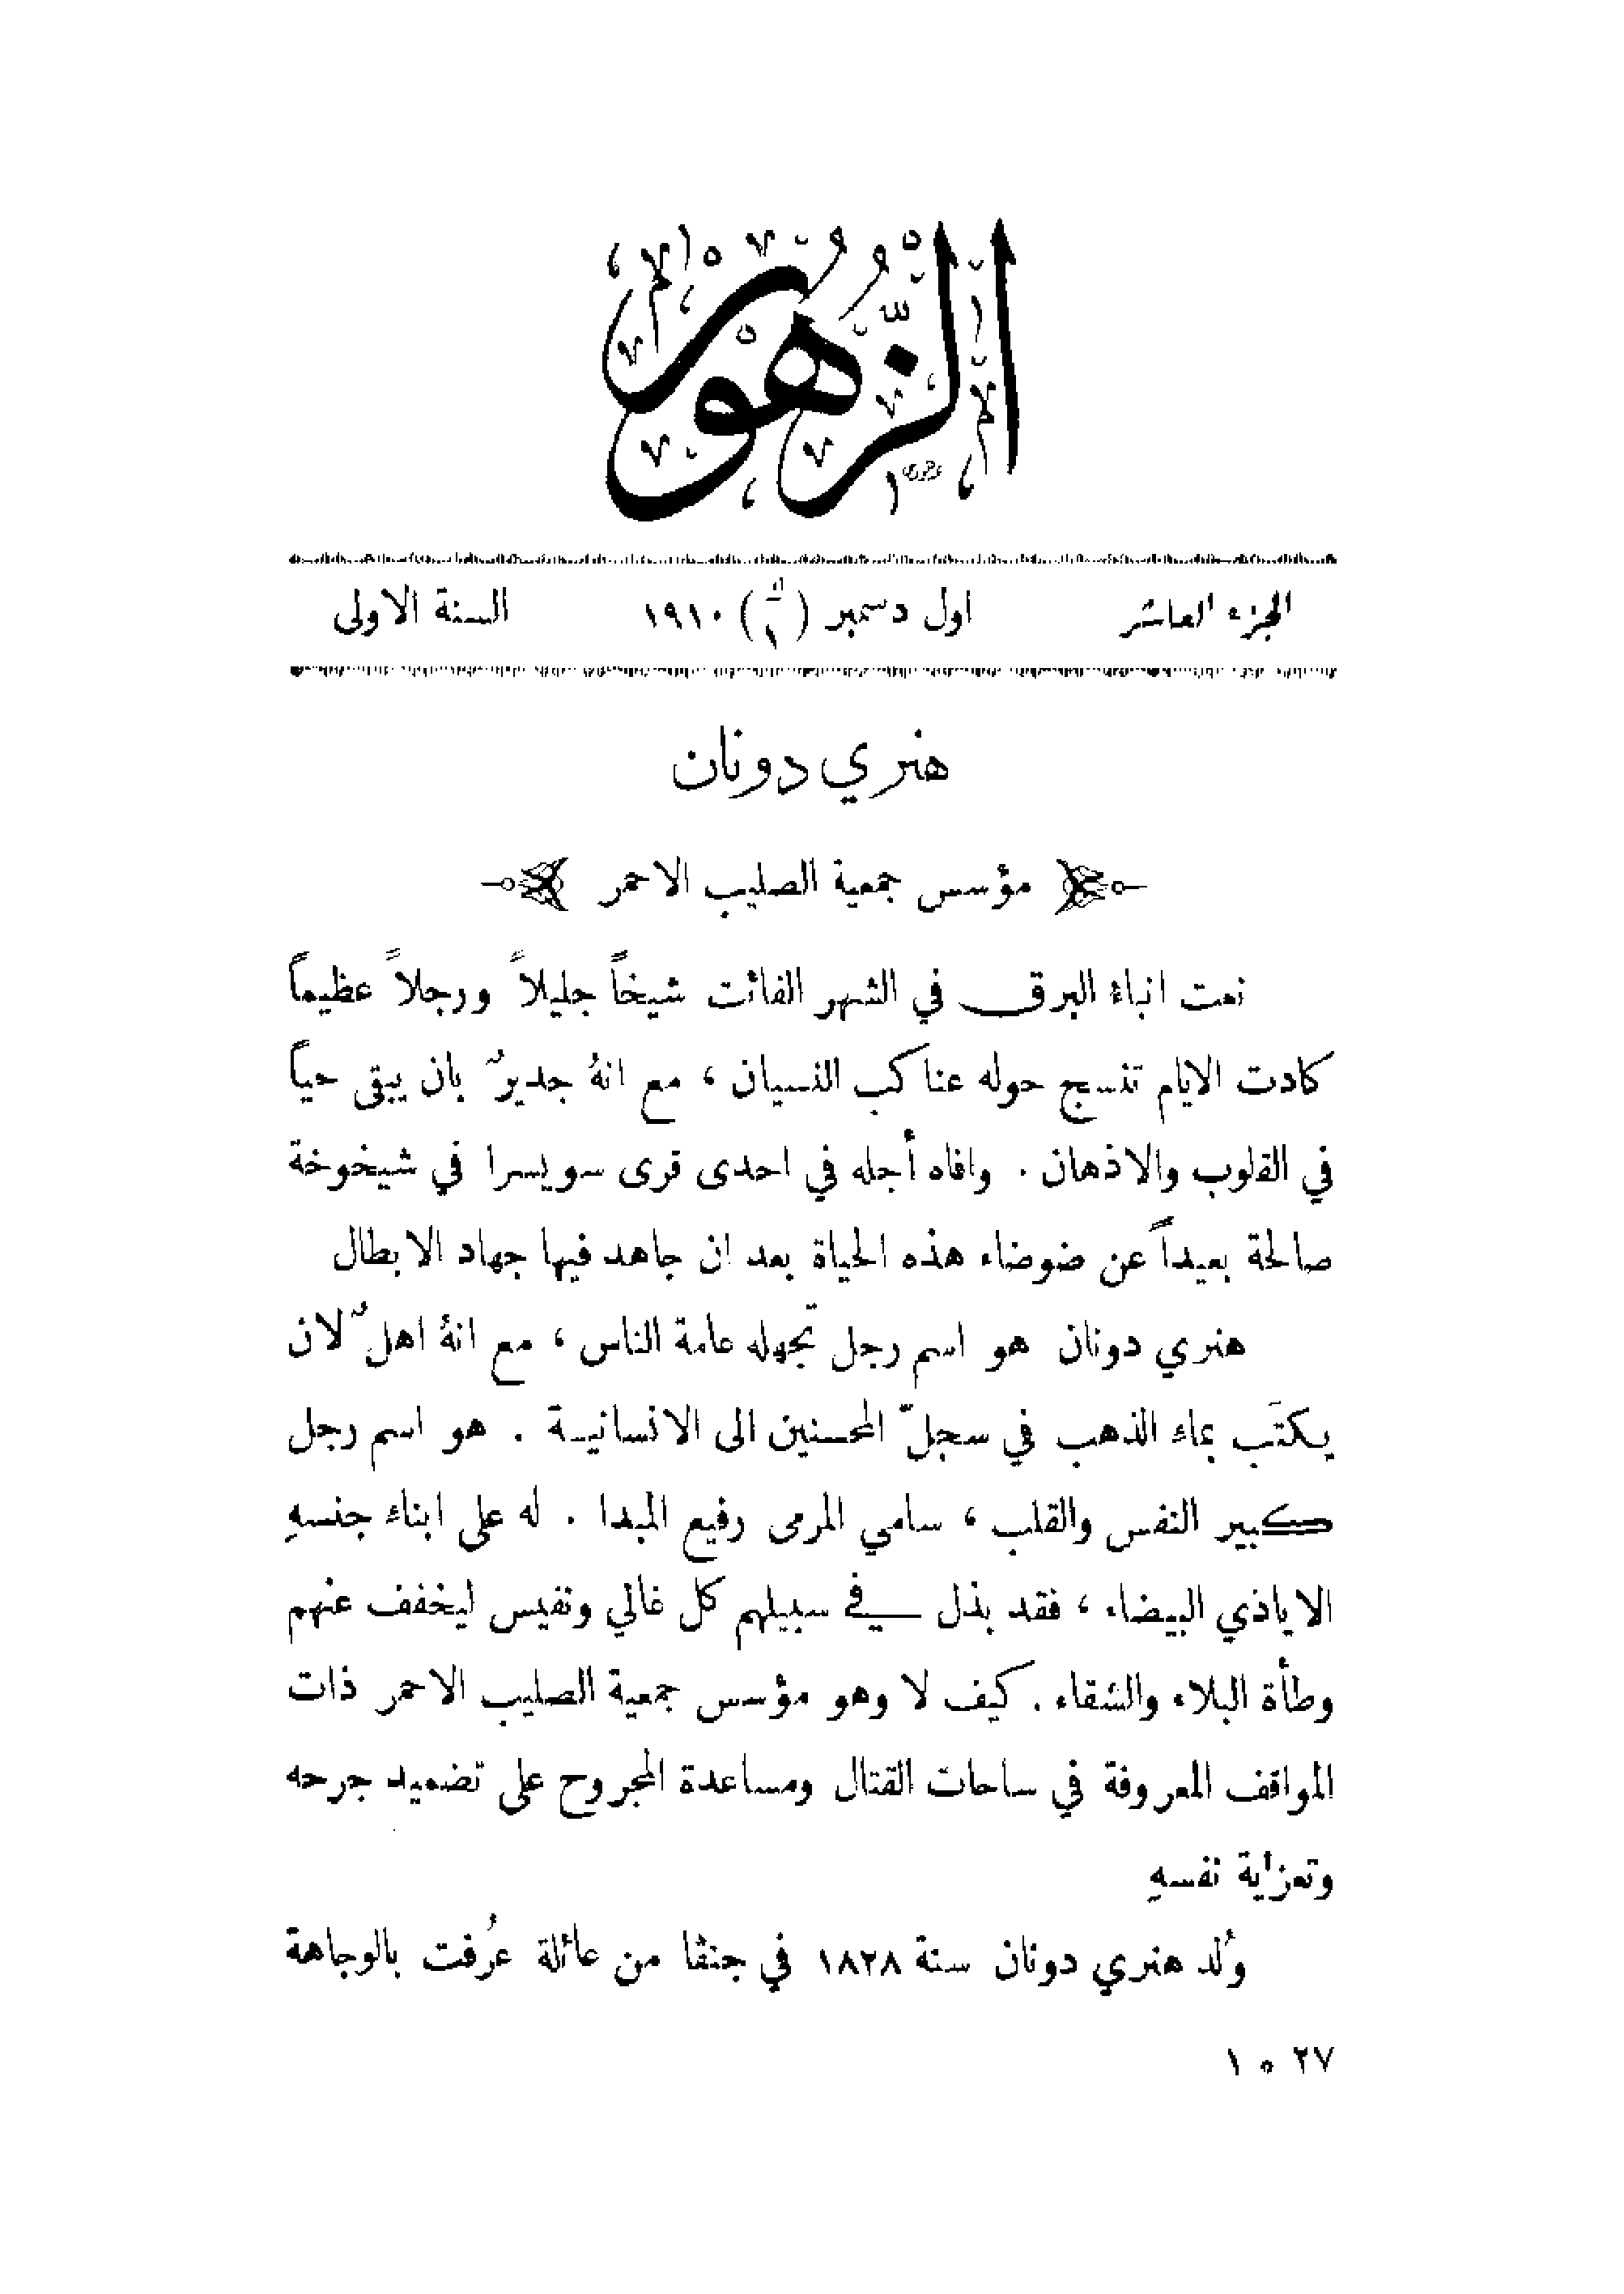 الزُّهُور
الجزء العاشر
اول دسمبر (ك١) ١٩١٠
السنة الاولى
هنري دونان
مؤسس جمعية الصليب الاحمر
نعت انباء البرق في الشهر الفائت شيخاً جليلاً ورجلاً عظيماً
كادت الايام تنسج حوله عناكب النسيان ، مع انهُ جديرٌ بان يبقى حياً
في القلوب والاذهان . وافاه أجله في احدى قرى سويسرا في شيخوخة
صالحة بعيداً عن ضوضاء هذه الحياة بعد ان جاهد فيها جهاد الابطال
هنري دونان هو اسم رجل تجهله عامة الناس ، مع انهُ اهلٌ لان
يكتَب بماء الذهب في سجلّ المحسنين الى الانسانية . هو اسم رجل
كبير النفس والقلب ، سامي المرمى رفيع المبدا . له على ابناء جنسهِ
الاياذي البيضاء ، فقد بذل في سبيلهم كل غالي ونفيس ليخفف عنهم
وطأة البلاء والشقاء . كيف لا وهو مؤسس جمعية الصليب الاحمر ذات
المواقف المعروفة في ساحات القتال ومساعدة المجروح على تضميد جرحه
وتعزاية نفسهِ
وُلد هنري دونان سنة ١٨٢٨ في جنڤا من عائلة عُرفت بالوجاهة
٢٧ ٥ ١